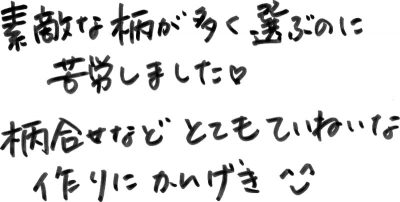 素敵な柄が多く選ぶのに
苦労しました♡
柄合せなど とてもていねいな
作りに かんげき ^^